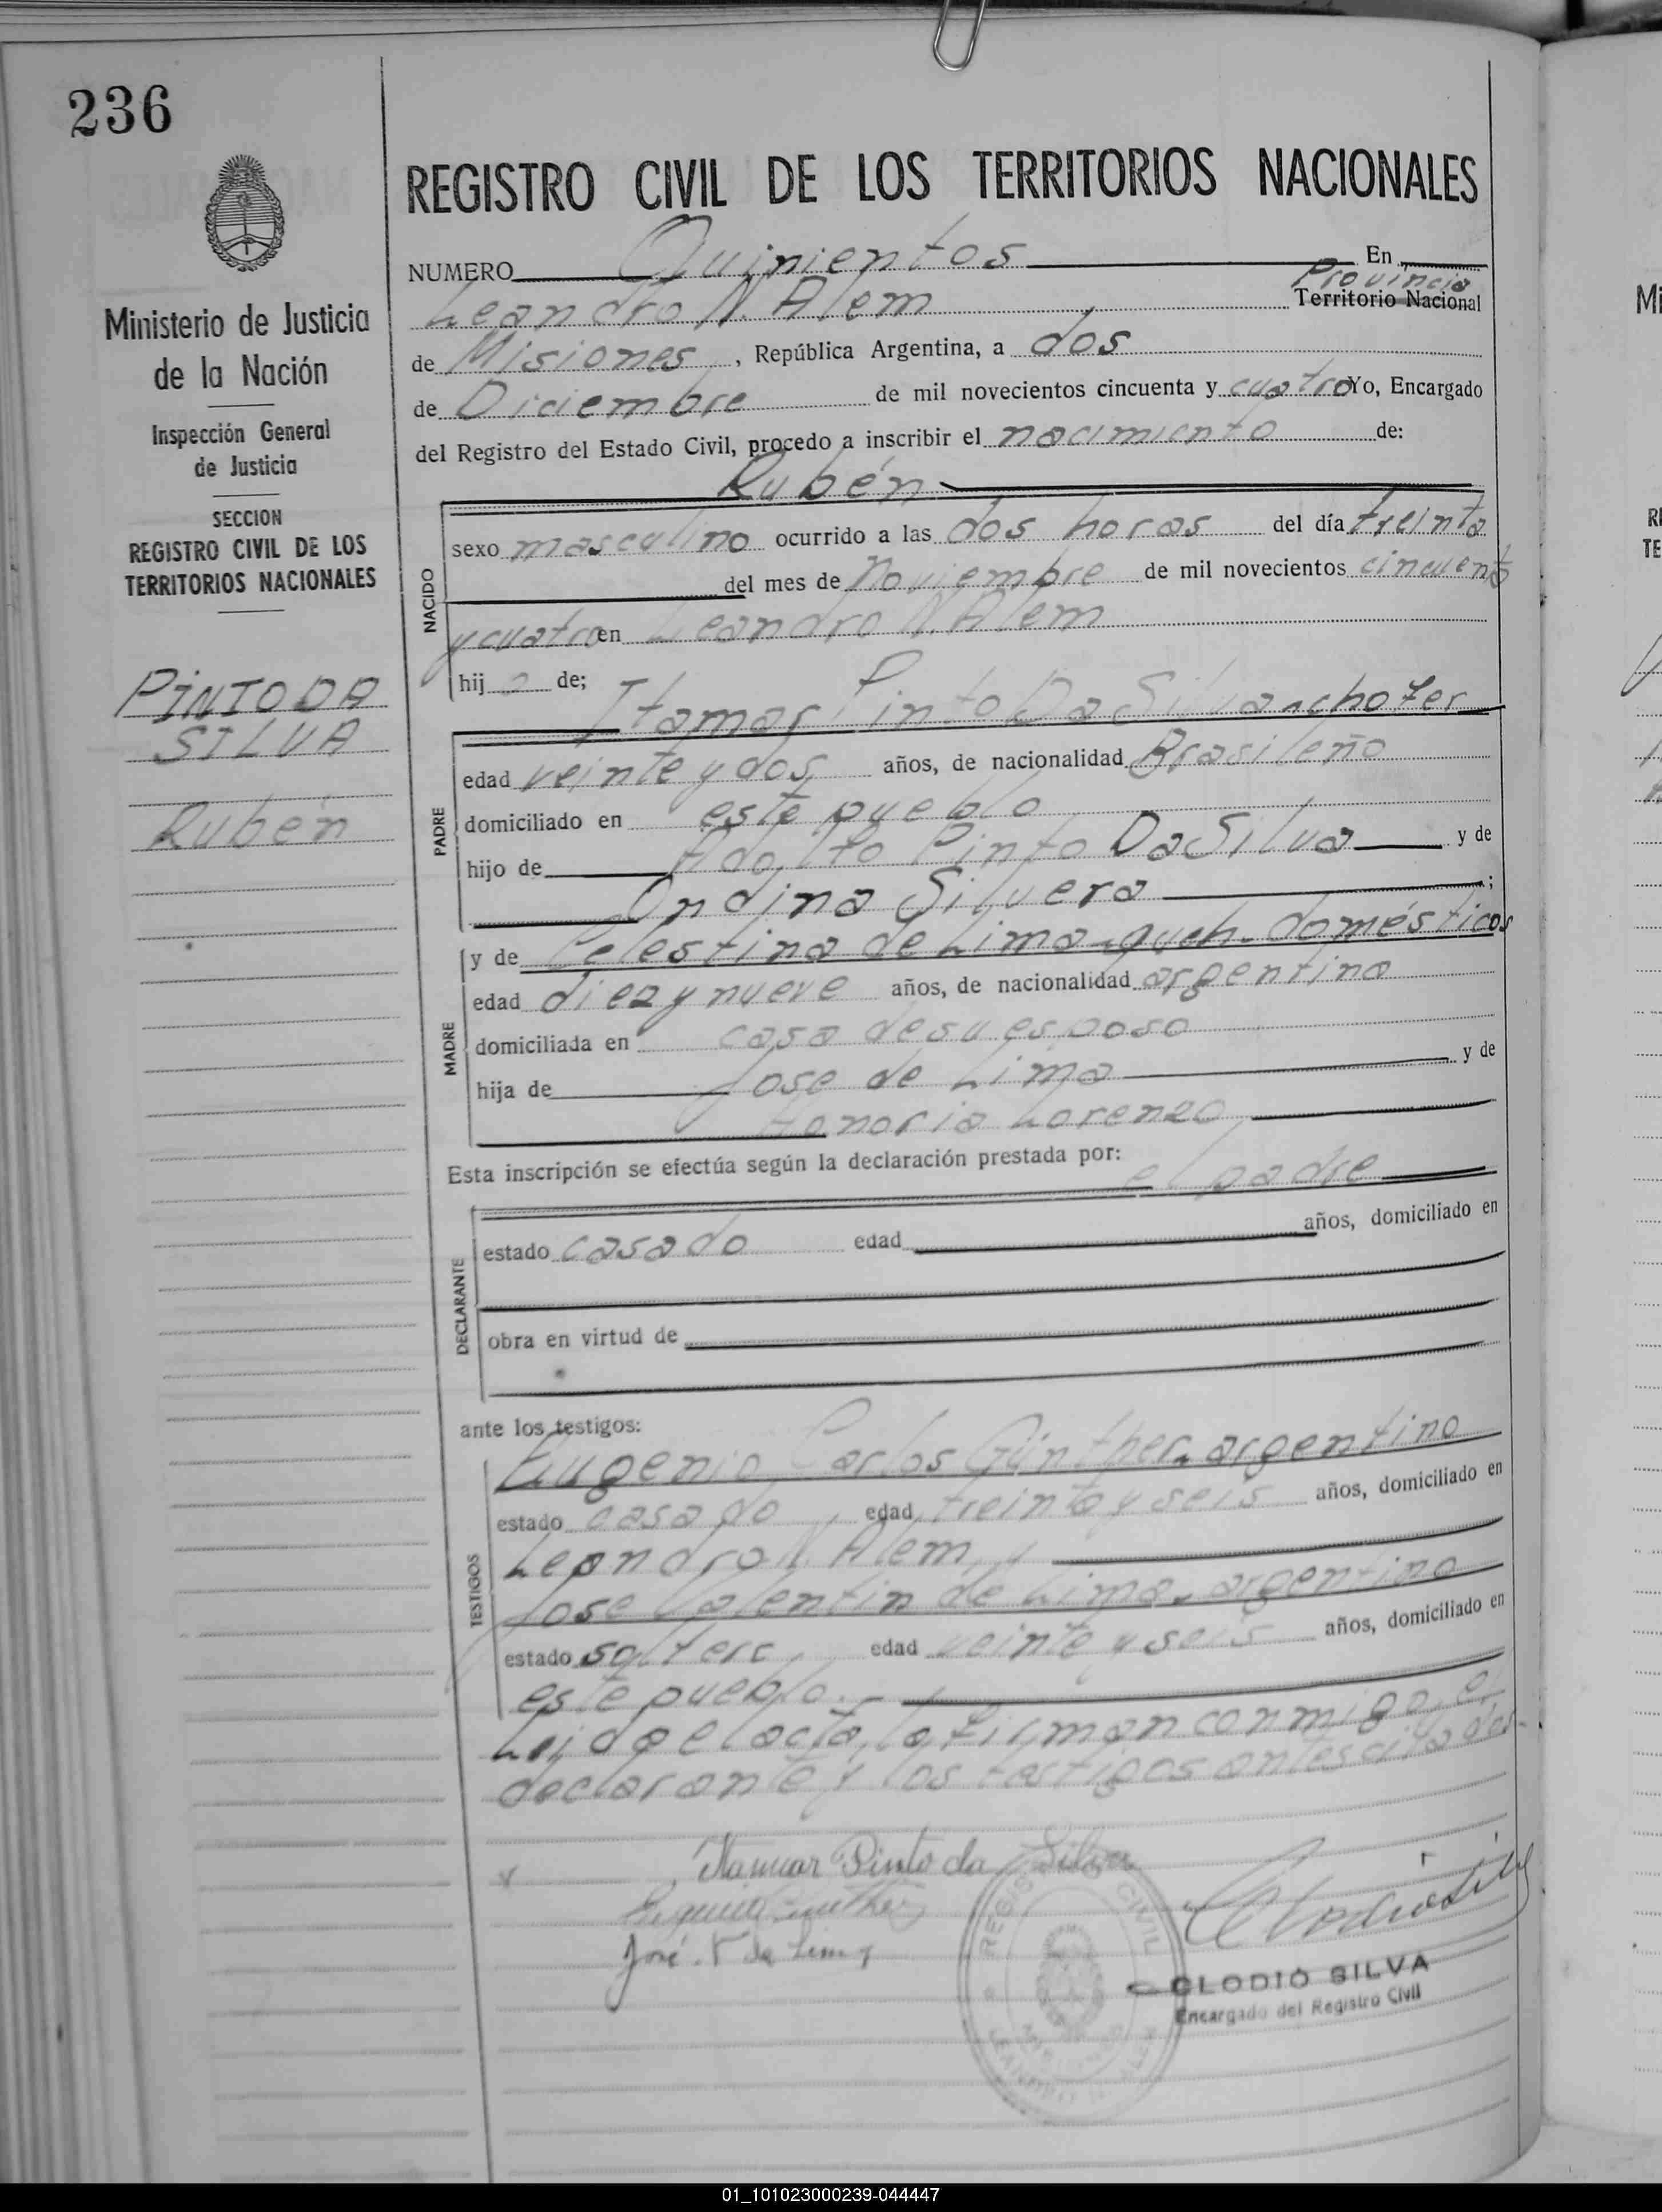 236
REGISTRO CIVIL DE LOS TERRITORIOS NACIONALES
Ministerio de Justicia
de la Nación
Inspección General
de Justicia
SECCION
REGISTRO CIVIL DE LOS
TERRITORIOS NACIONALES
PINTO DA
SILVA
Rubén
NUMERO Quinientos En
Provincia
Leandro N. Alem Territorio Nacional
de Misiones, República Argentina, a dos
de Diciembre de mil novecientos cincuenta y cuatro Yo, Encargado
del Registro del Estado Civil, procedo a inscribir el nacimiento de:
Rubén
NACIDO
sexo masculino ocurrido a las dos horas del día treinta
del mes de Noviembre de mil novecientos cincuenta
y cuatro en Leandro N. Alem
hijo de;
Itamar Pinto Da Silva chofer
PADRE
edad veinte y dos años, de nacionalidad Brasileño
domiciliado en este pueblo
hijo de Adolfo Pinto Da Silva y de
Ondina Silvera;
MADRE
y de Celestina de Lima - queh. domésticos
edad diez y nueve años, de nacionalidad argentina
domiciliada en casa de su esposo
hija de Jose de Lima y de
Honoria Lorenzo
Esta inscripción se efectúa según la declaración prestada por:
el padre
DECLARANTE
estado casado edad años, domiciliado en
obra en virtud de
ante los testigos:
TESTIGOS
Eugenio Carlos Günther argentino
estado casado edad treinta y seis años, domiciliado en
Leandro N. Alem, y
Jose Valentin de Lima argentino
estado soltero edad veinte y seis años, domiciliado en
este pueblo.-
Leida el acta, la firman conmigo, el
declarante y los testigos antes citados-
Itamar Pinto da Silva
José V de Lima
REGISTRO CIVIL
LEANDRO N. ALEM
CLODIO SILVA
Encargado del Registro Civil
Mi
RE
TE
01_101023000239-044447